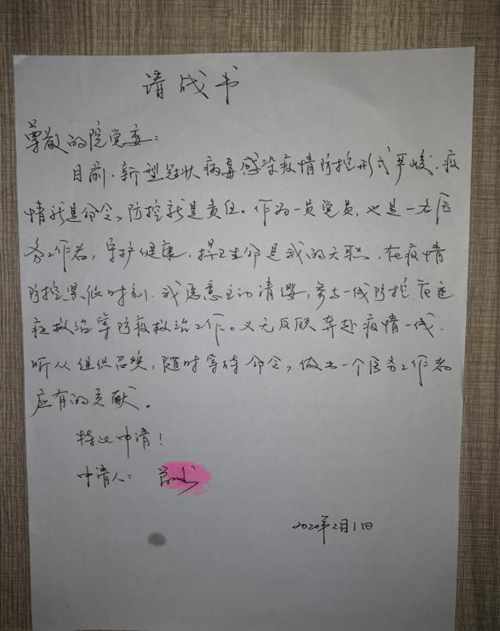 请战书
尊敬的院党委：
目前，新型冠状病毒感染疫情防控形式严峻，疫
情就是命令，防控就是责任。作为一员党员，也是一名医
务工作者，守护健康，捍卫生命是我的天职，在疫情
防控紧张时刻，我愿意主动请缨，参与一线防控
救治等防疫救治工作。义无反顾奔赴疫情一线，
听从组织召唤，随时等待命令，做出一个医务工作者
应有的贡献。
特此申请！
申请人：
2020年2月1日